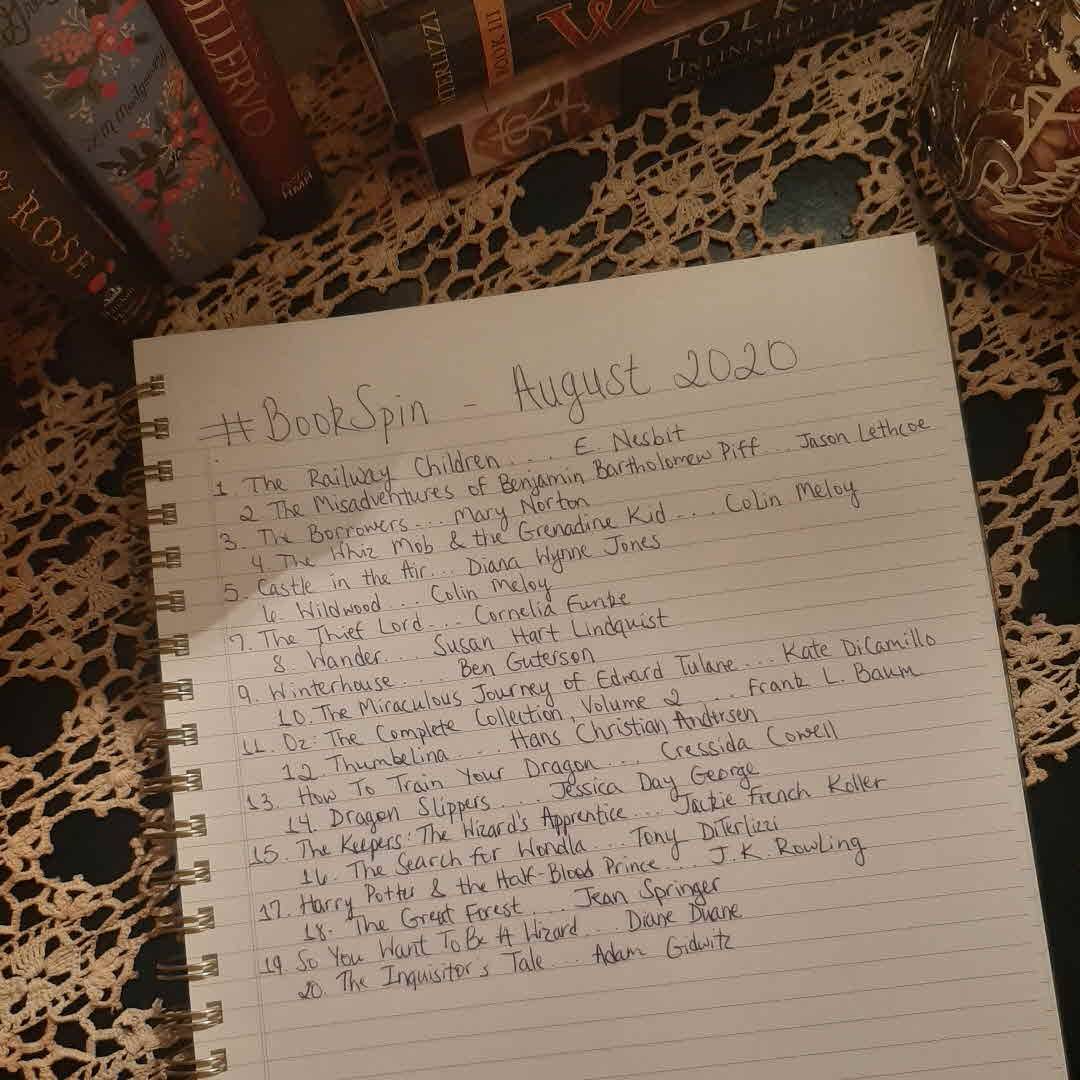 L.M. Montgomery
ROSE
DITERLIZZI
BOOK II
TOLK
UNFINISHED TA
#BookSpin - August 2020
1. The Railway Children.... E. Nesbit
2 The Misadventures of Benjamin Bartholomew Piff... Jason Lethcoe
3. The Borrowers... Mary Norton
4. The Whiz Mob & the Grenadine Kid.... Colin Meloy
5. Castle in the Air... Diana Wynne Jones
6. Wildwood.... Colin Meloy
7. The Thief Lord.... Cornelia Funke
8. Wander.... Susan Hart Lindquist
9. Winterhouse.... Ben Guterson
10. The Miraculous Journey of Edward Tulane.... Kate DiCamillo
11. Oz: The Complete Collection, Volume 2.... Frank L. Baum
12. Thumbelina.... Hans Christian Andersen
13. How To Train Your Dragon.... Cressida Cowell
14. Dragon Slippers.... Jessica Day George
15. The Keepers: The Wizard's Apprentice.... Jackie French Koller
16. The Search for Wondla... Tony DiTerlizzi
17. Harry Potter & the Half-Blood Prince.... J.K. Rowling
18. The Great Forest.... Jean Springer
19 So You Want To Be A Wizard... Diane Duane
20. The Inquisitor's Tale... Adam Gidwitz